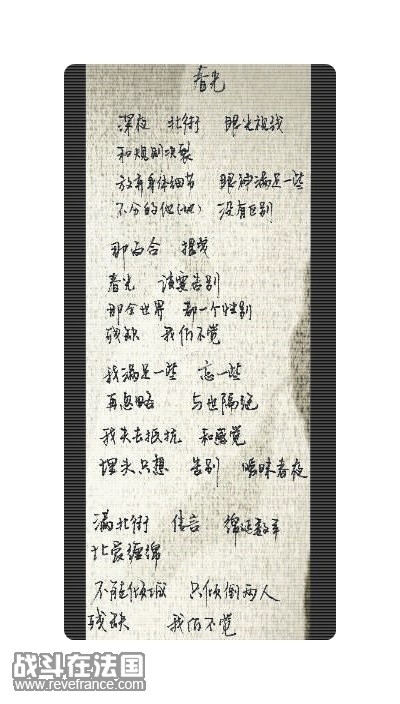 春光
深夜 北街 眼光视线
和规则决裂
放弃身体细节 眼神满足一些
不分的他(她) 没有区别
那百合
春光 该要告别
那全世界 都一个性别
残缺 我们不觉
我满足一些 忘一些
再忽略 与世隔绝
我失去抵抗 和感觉
埋头只想 告别 暧昧春夜
满北街 传言 绵延数年
比爱缠绵
不能倾城 只倾倒两人
残缺 我们不觉
战斗在法国
www.revefrance.com